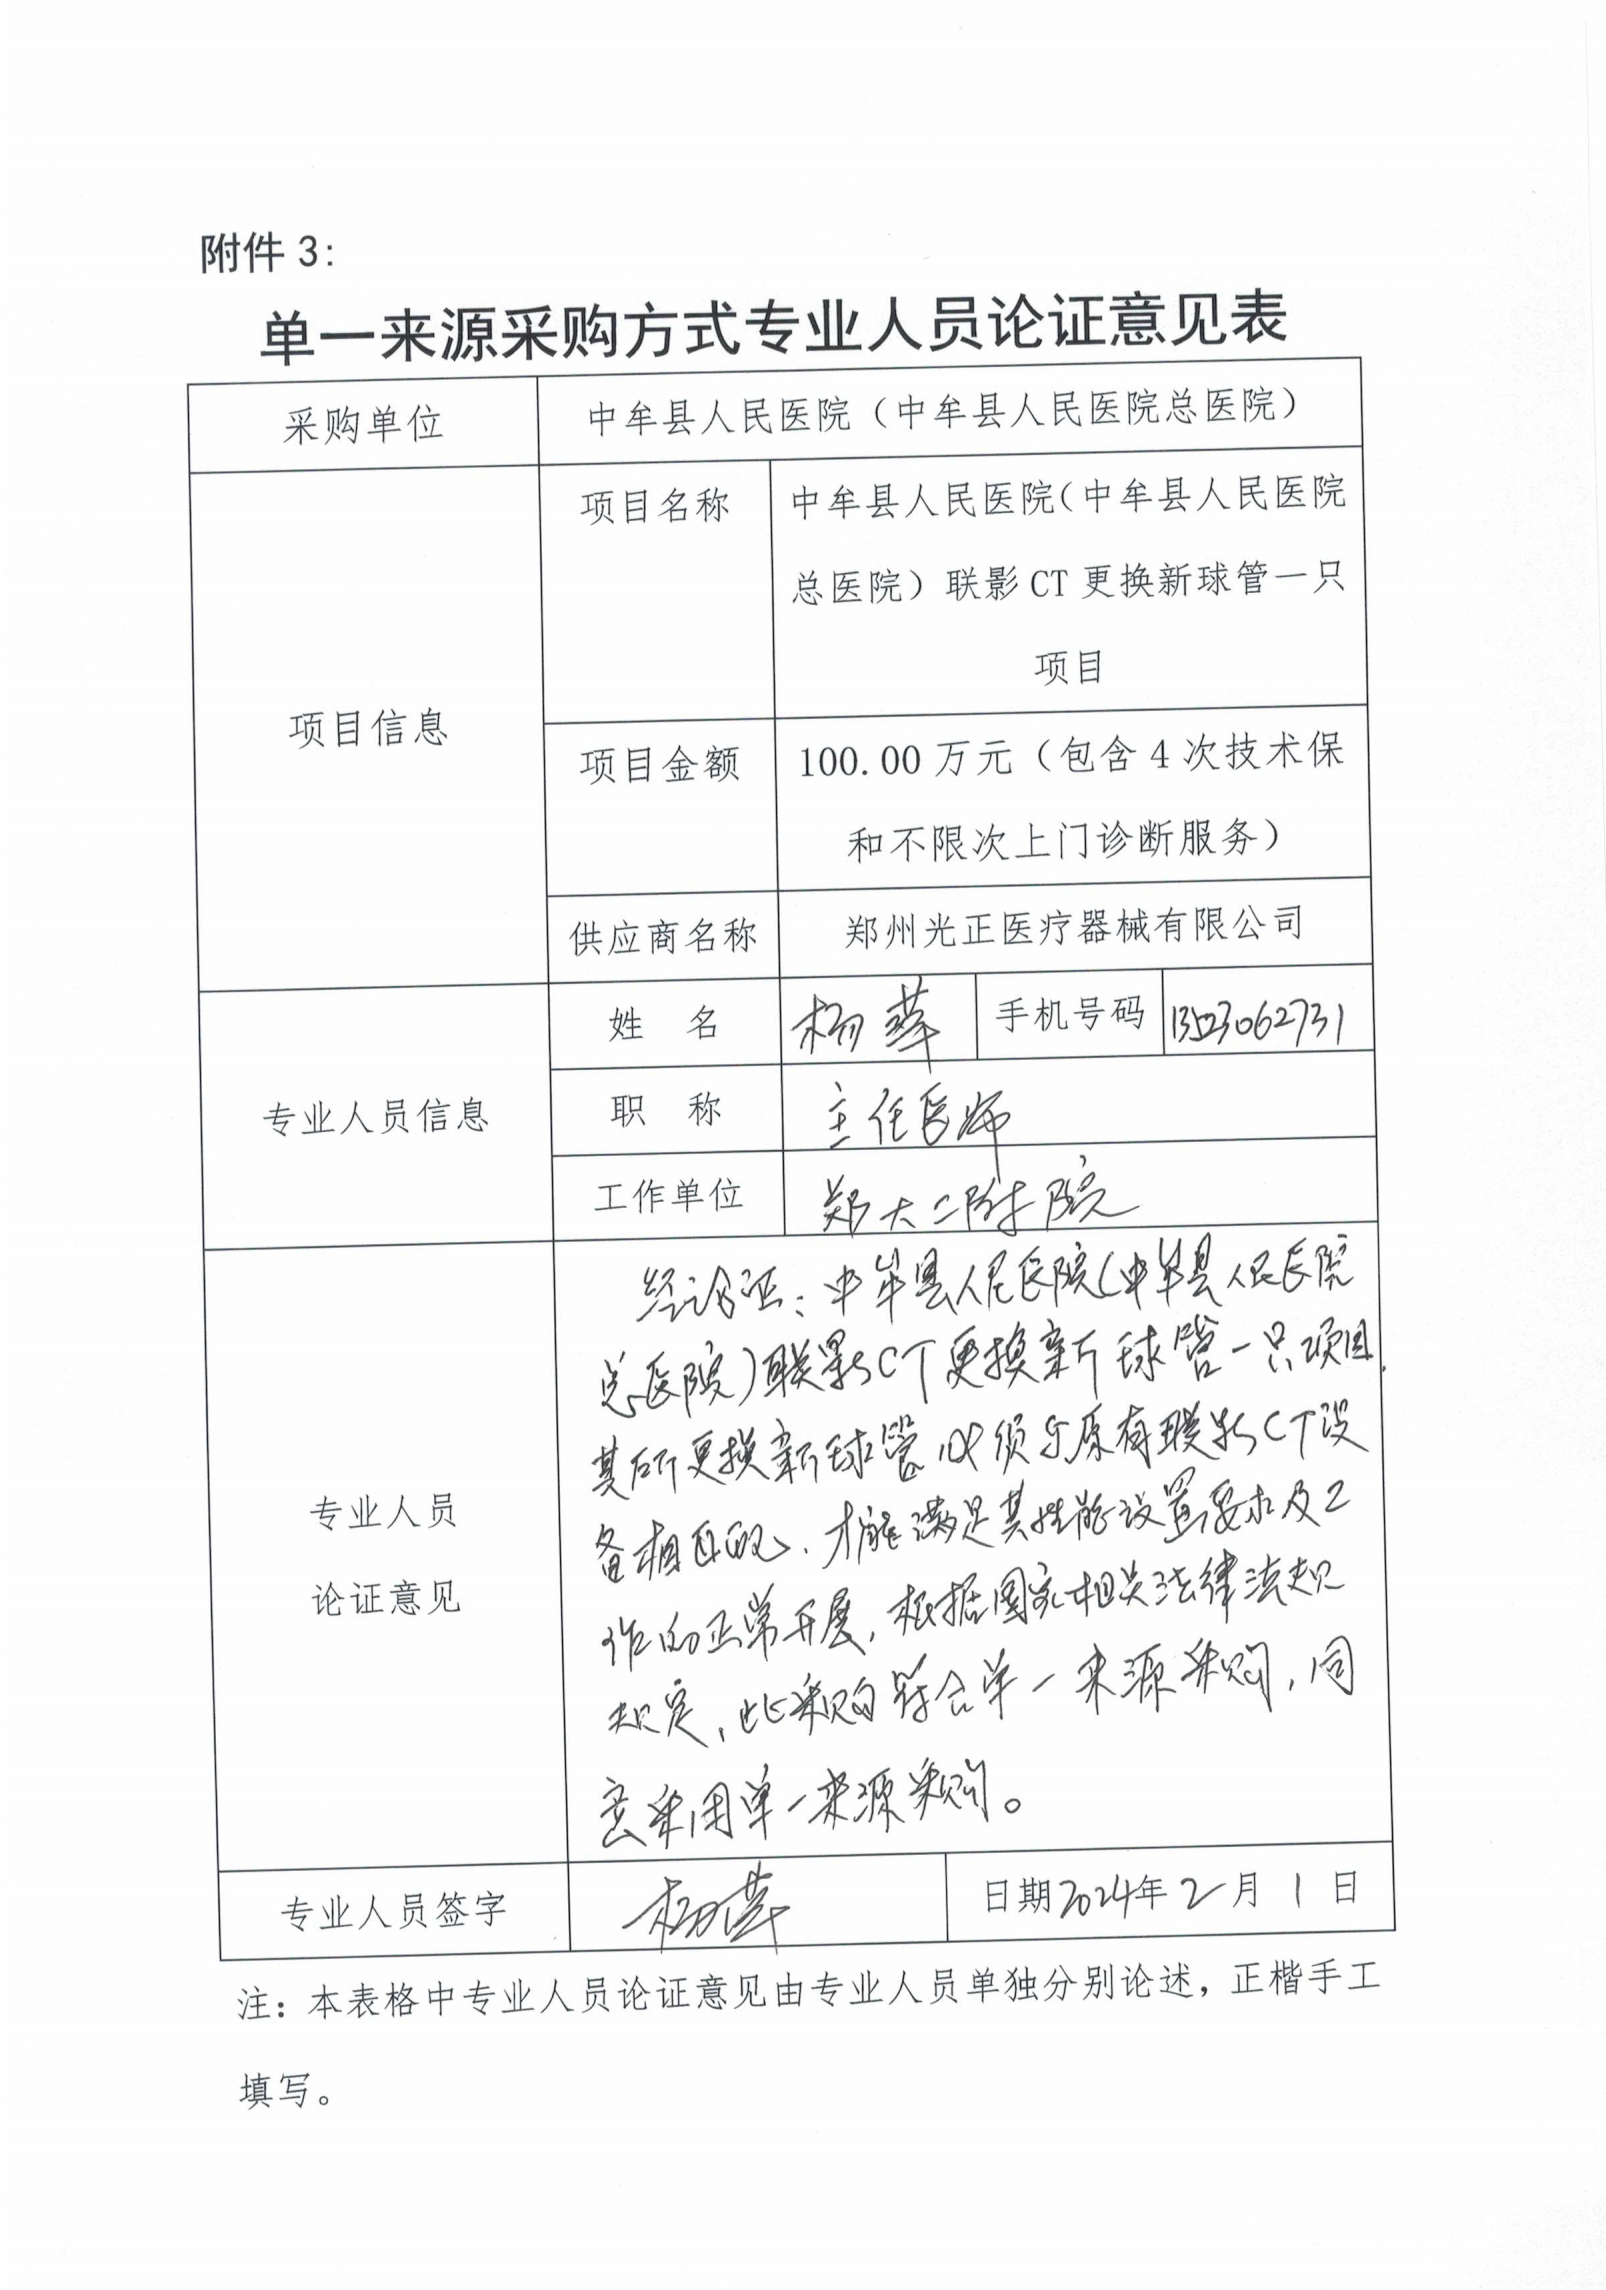 附件 3:
单一来源采购方式专业人员论证意见表
采购单位
中牟县人民医院（中牟县人民医院总医院）
项目信息
项目名称
中牟县人民医院（中牟县人民医院
总医院）联影 CT 更换新球管一只
项目
项目金额
100.00 万元（包含 4 次技术保
和不限次上门诊断服务）
供应商名称
郑州光正医疗器械有限公司
专业人员信息
姓 名
杨
手机号码
职 称
主任医师
工作单位
郑大二附院
专业人员
论证意见
经论证：中牟县人民医院（中牟县人民医院
总医院）联影CT更换新球管一只项目，
其所更换新球管必须与原有联影CT设
备相匹配，才能满足其性能设置要求及工
作的正常开展，根据国家相关法律法规
规定，此采购符合单一来源采购，同
意采用单一来源采购。
专业人员签字
杨
日期2024年2月1日
注：本表格中专业人员论证意见由专业人员单独分别论述，正楷手工
填写。